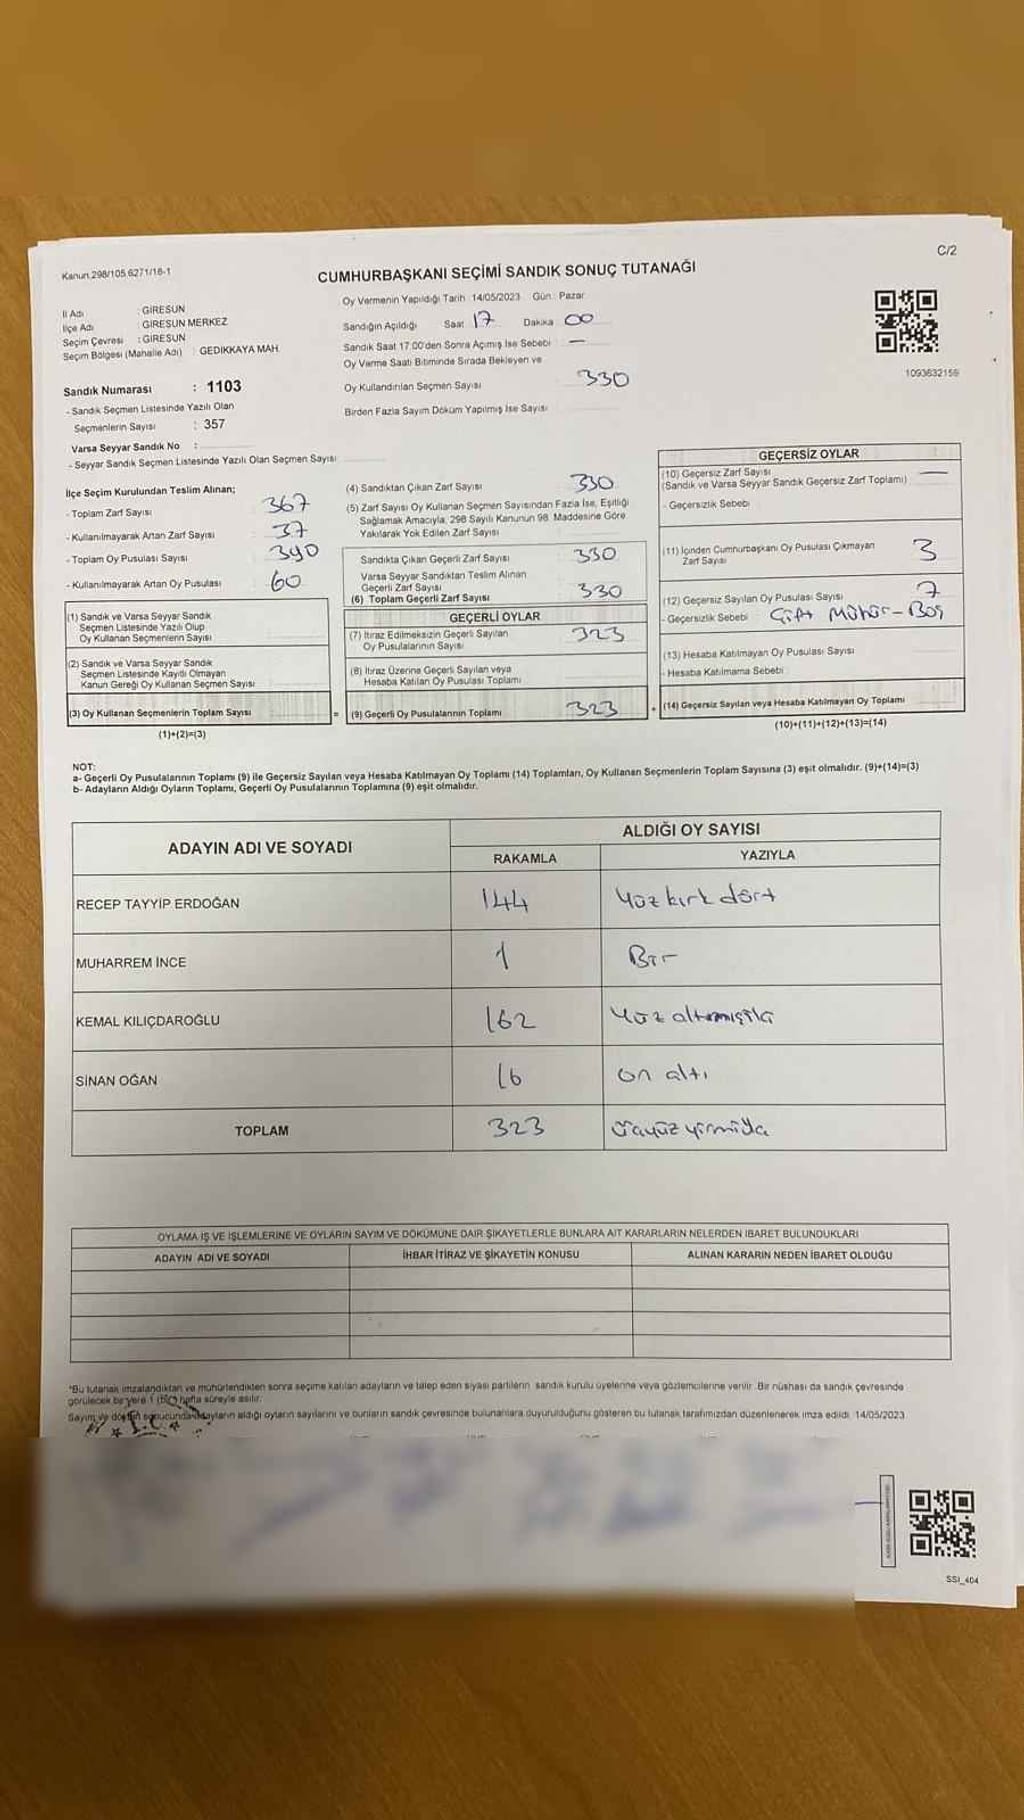 C/2
Kanun.298/105.6271/16-1
CUMHURBAŞKANI SEÇİMİ SANDIK SONUÇ TUTANAĞI
İl Adı : GİRESUN
İlçe Adı : GİRESUN MERKEZ
Seçim Çevresi : GİRESUN
Seçim Bölgesi (Mahalle Adı) : GEDIKKAYA MAH.
Oy Vermenin Yapıldığı Tarih 14/05/2023 Gün : Pazar
Sandığın Açıldığı Saat 17 Dakika 00
Sandık Saat 17:00'den Sonra Açımış İse Sebebi : —
Oy Verme Saati Bitiminde Sırada Bekleyen ve
Oy Kullandırılan Seçmen Sayısı 330
Birden Fazla Sayım Döküm Yapılmış İse Sayısı
1093632159
Sandık Numarası : 1103
- Sandık Seçmen Listesinde Yazılı Olan
Seçmenlerin Sayısı : 357
Varsa Seyyar Sandık No :
- Seyyar Sandık Seçmen Listesinde Yazılı Olan Seçmen Sayısı
İlçe Seçim Kurulundan Teslim Alınan;
- Toplam Zarf Sayısı 367
- Kullanılmayarak Artan Zarf Sayısı 37
- Toplam Oy Pusulası Sayısı 390
- Kullanılmayarak Artan Oy Pusulası 60
(1) Sandık ve Varsa Seyyar Sandık
Seçmen Listesinde Yazılı Olup
Oy Kullanan Seçmenlerin Sayısı
(2) Sandık ve Varsa Seyyar Sandık
Seçmen Listesinde Kayıtlı Olmayan
Kanun Gereği Oy Kullanan Seçmen Sayısı
(3) Oy Kullanan Seçmenlerin Toplam Sayısı
(1)+(2)=(3)
(4) Sandıktan Çıkan Zarf Sayısı 330
(5) Zarf Sayısı Oy Kullanan Seçmen Sayısından Fazla İse, Eşitliği
Sağlamak Amacıyla, 298 Sayılı Kanunun 98. Maddesine Göre
Yakılarak Yok Edilen Zarf Sayısı
Sandıkta Çıkan Geçerli Zarf Sayısı 330
Varsa Seyyar Sandıktan Teslim Alınan
Geçerli Zarf Sayısı
(6) Toplam Geçerli Zarf Sayısı 330
GEÇERLİ OYLAR
(7) İtiraz Edilmeksizin Geçerli Sayılan
Oy Pusulalarının Sayısı 323
(8) İtiraz Üzerine Geçerli Sayılan veya
Hesaba Katılan Oy Pusulası Toplamı
= (9) Geçerli Oy Pusulalarının Toplamı 323 +
GEÇERSİZ OYLAR
(10) Geçersiz Zarf Sayısı —
(Sandık ve Varsa Seyyar Sandık Geçersiz Zarf Toplamı)
- Geçersizlik Sebebi
(11) İçinden Cumhurbaşkanı Oy Pusulası Çıkmayan
Zarf Sayısı 3
(12) Geçersiz Sayılan Oy Pusulası Sayısı 7
- Geçersizlik Sebebi Çift Mühür - Boş
(13) Hesaba Katılmayan Oy Pusulası Sayısı
- Hesaba Katılmama Sebebi
(14) Geçersiz Sayılan veya Hesaba Katılmayan Oy Toplamı
(10)+(11)+(12)+(13)=(14)
NOT:
a- Geçerli Oy Pusulalarının Toplamı (9) ile Geçersiz Sayılan veya Hesaba Katılmayan Oy Toplamı (14) Toplamları, Oy Kullanan Seçmenlerin Toplam Sayısına (3) eşit olmalıdır. (9)+(14)=(3)
b- Adayların Aldığı Oyların Toplamı, Geçerli Oy Pusulalarının Toplamına (9) eşit olmalıdır.
ADAYIN ADI VE SOYADI
ALDIĞI OY SAYISI
RAKAMLA YAZIYLA
RECEP TAYYİP ERDOĞAN 144 Yüz kırk dört
MUHARREM İNCE 1 Bir
KEMAL KILIÇDAROĞLU 162 Yüz altmışiki
SİNAN OĞAN 16 on altı
TOPLAM 323 üçyüz yirmiüç
OYLAMA İŞ VE İŞLEMLERİNE VE OYLARIN SAYIM VE DÖKÜMÜNE DAİR ŞİKAYETLERLE BUNLARA AİT KARARLARIN NELERDEN İBARET BULUNDUKLARI
ADAYIN ADI VE SOYADI İHBAR İTİRAZ VE ŞİKAYETİN KONUSU ALINAN KARARIN NEDEN İBARET OLDUĞU
*Bu tutanak imzalandıktan ve mühürlendikten sonra seçime katılan adayların ve talep eden siyasi partilerin sandık kurulu üyelerine veya gözlemcilerine verilir. Bir nüshası da sandık çevresinde
görülecek bir yere 1 (bir) hafta süreyle asılır.
Sayım ve döküm sonucunda adayların aldığı oyların sayılarını ve bunların sandık çevresinde bulunanlara duyurulduğunu gösteren bu tutanak tarafımızdan düzenlenerek imza edildi. 14/05/2023
T.C.
SSI_404